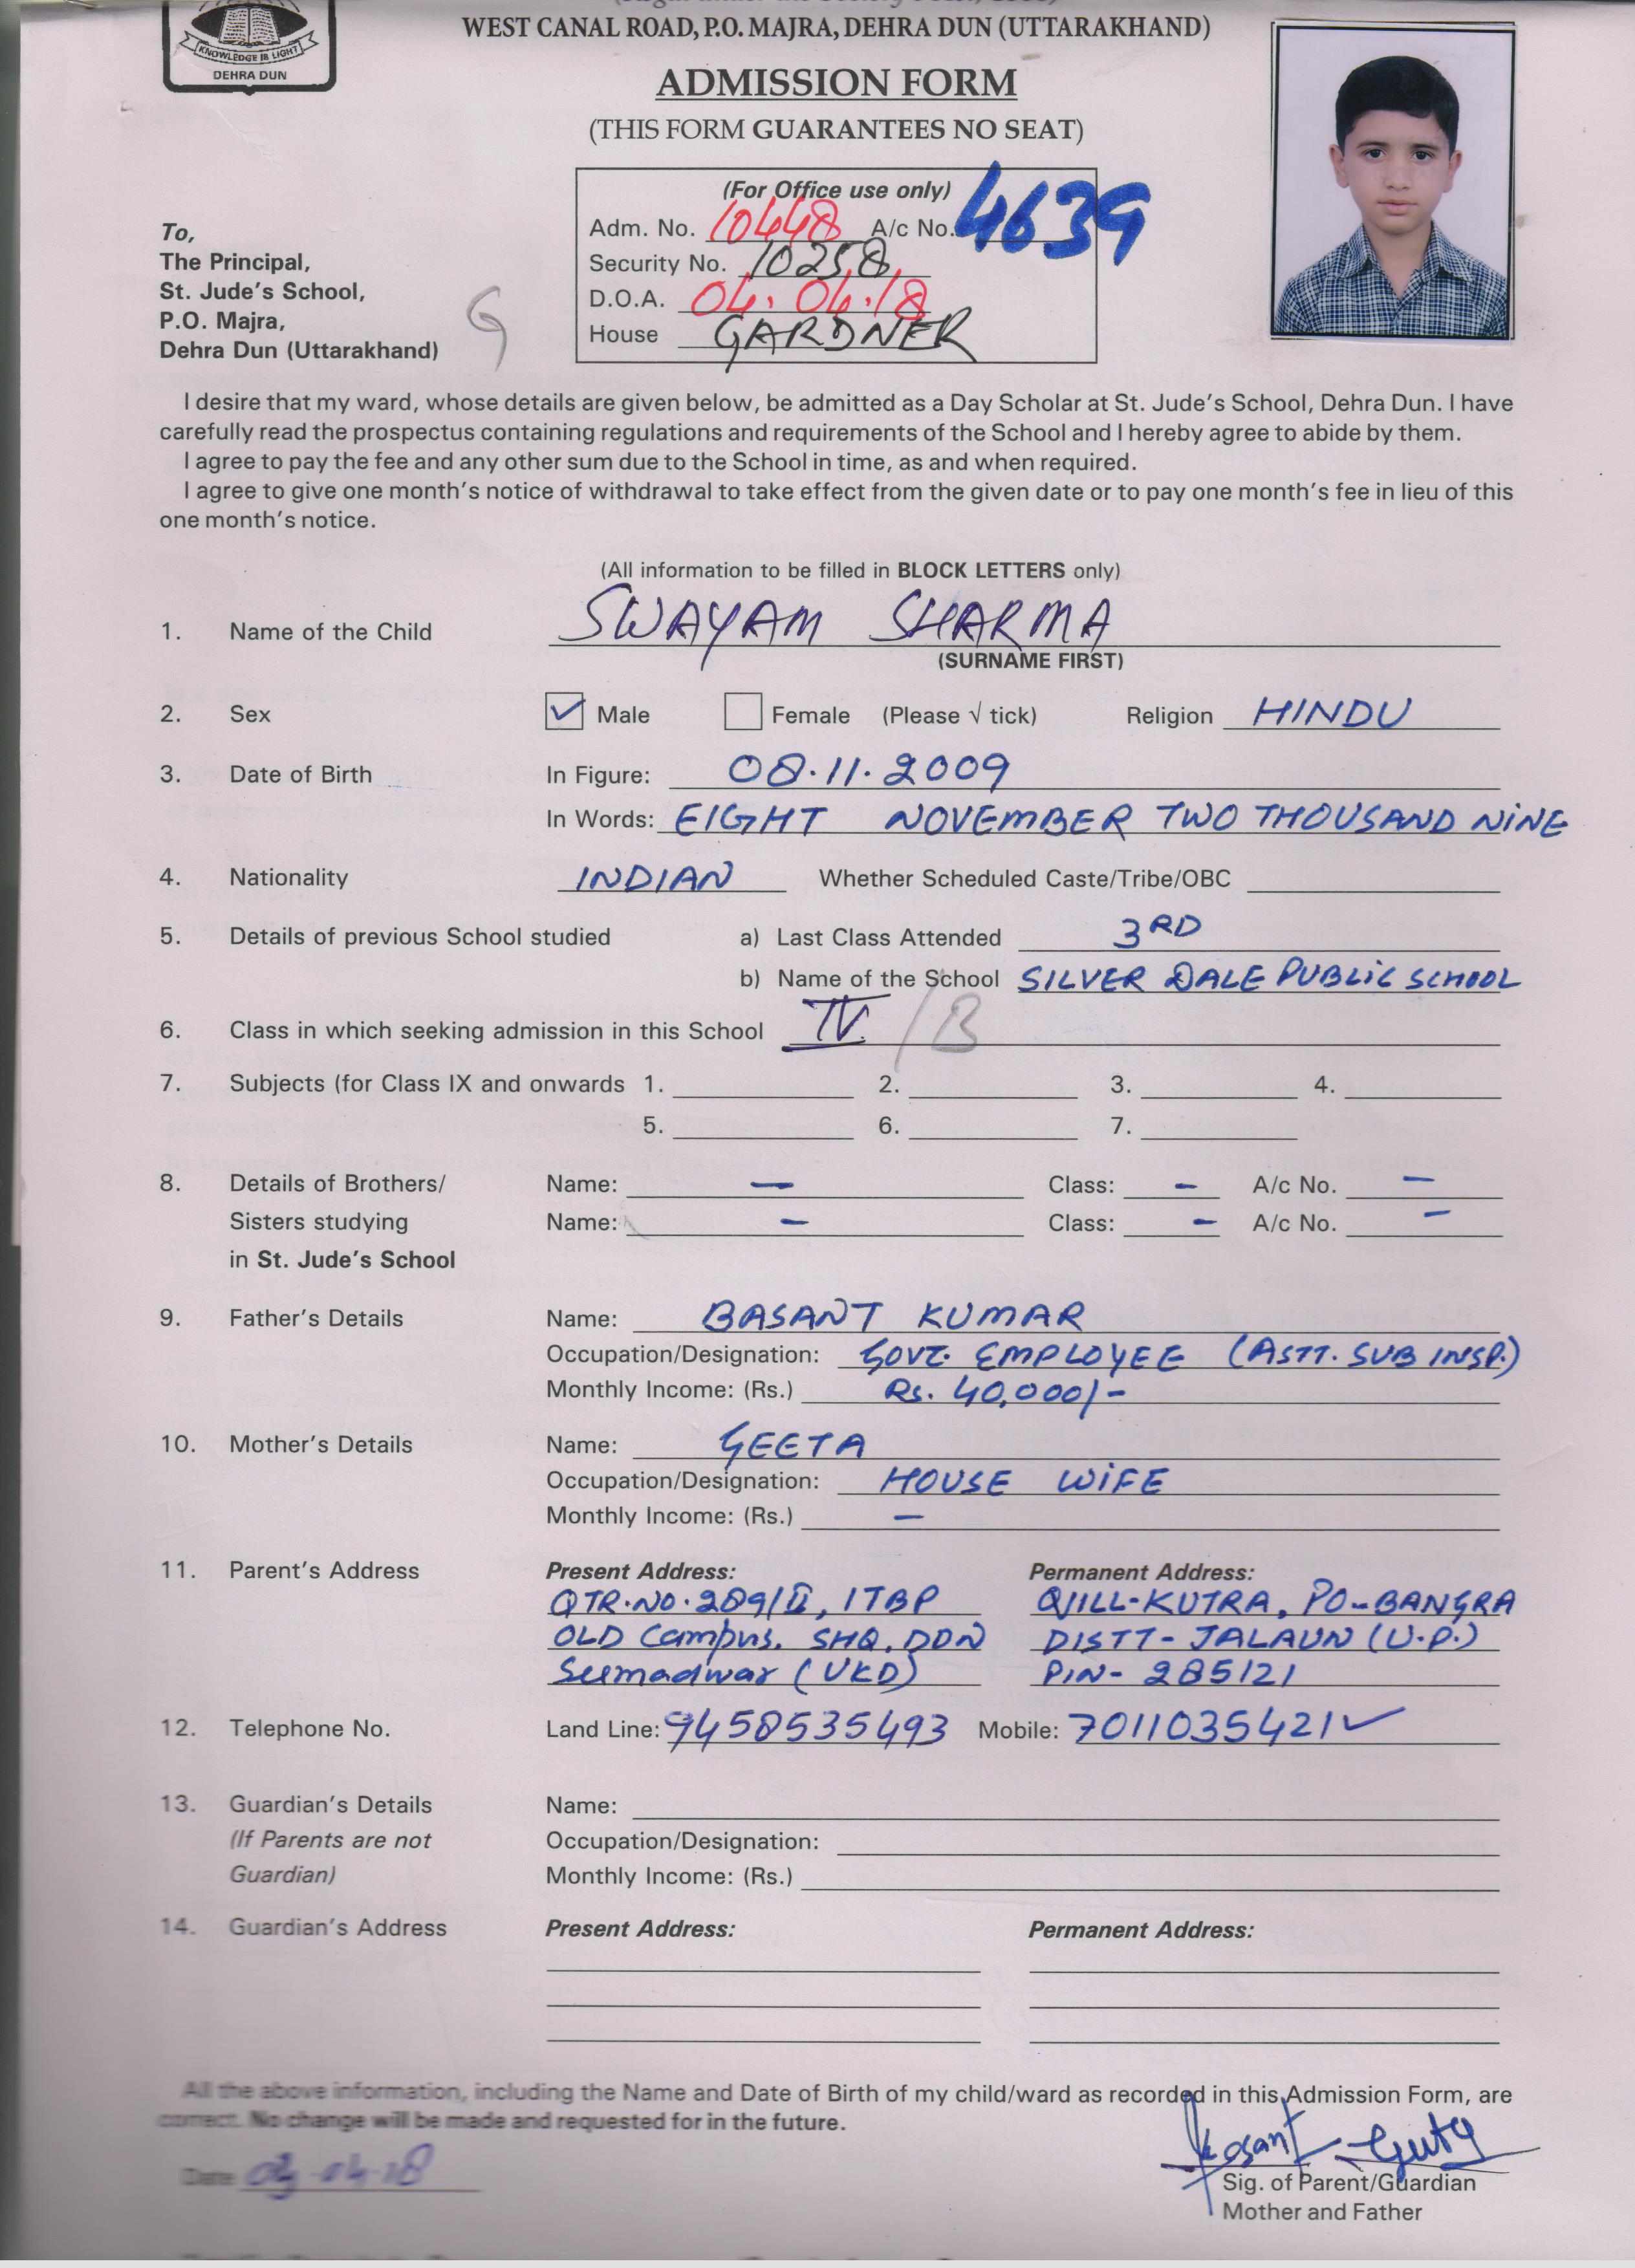 KNOWLEDGE IS LIGHT
DEHRA DUN
WEST CANAL ROAD, P.O. MAJRA, DEHRA DUN (UTTARAKHAND)
ADMISSION FORM
(THIS FORM GUARANTEES NO SEAT)
(For Office use only)
Adm. No. 10448 A/c No. 4639
Security No. 10258
D.O.A. 04.04.18
House GARDNER
To,
The Principal,
St. Jude's School,
P.O. Majra,
Dehra Dun (Uttarakhand)
G
I desire that my ward, whose details are given below, be admitted as a Day Scholar at St. Jude's School, Dehra Dun. I have
carefully read the prospectus containing regulations and requirements of the School and I hereby agree to abide by them.
I agree to pay the fee and any other sum due to the School in time, as and when required.
I agree to give one month's notice of withdrawal to take effect from the given date or to pay one month's fee in lieu of this
one month's notice.
(All information to be filled in BLOCK LETTERS only)
1. Name of the Child SWAYAM SHARMA
(SURNAME FIRST)
2. Sex ✓ Male Female (Please √ tick) Religion HINDU
3. Date of Birth In Figure: 08.11.2009
In Words: EIGHT NOVEMBER TWO THOUSAND NINE
4. Nationality INDIAN Whether Scheduled Caste/Tribe/OBC
5. Details of previous School studied a) Last Class Attended 3RD
b) Name of the School SILVER DALE PUBLIC SCHOOL
6. Class in which seeking admission in this School IV /B
7. Subjects (for Class IX and onwards 1. 2. 3. 4.
5. 6. 7.
8. Details of Brothers/ Name: — Class: — A/c No. —
Sisters studying Name: — Class: — A/c No. —
in St. Jude's School
9. Father's Details Name: BASANT KUMAR
Occupation/Designation: GOVT. EMPLOYEE (ASTT. SUB INSP.)
Monthly Income: (Rs.) Rs. 40,000/-
10. Mother's Details Name: GEETA
Occupation/Designation: HOUSE WIFE
Monthly Income: (Rs.) —
11. Parent's Address Present Address: Permanent Address:
QTR.NO.289/II, ITBP VILL-KUTRA, PO-BANGRA
OLD Campus. SHQ, DDN DISTT- JALAUN (U.P.)
Seemadwar (UKD) PIN- 285121
12. Telephone No. Land Line: 9458535493 Mobile: 7011035421 ✓
13. Guardian's Details Name:
(If Parents are not Occupation/Designation:
Guardian) Monthly Income: (Rs.)
14. Guardian's Address Present Address: Permanent Address:
All the above information, including the Name and Date of Birth of my child/ward as recorded in this Admission Form, are
correct. No change will be made and requested for in the future.
Date
Sig. of Parent/Guardian
Mother and Father